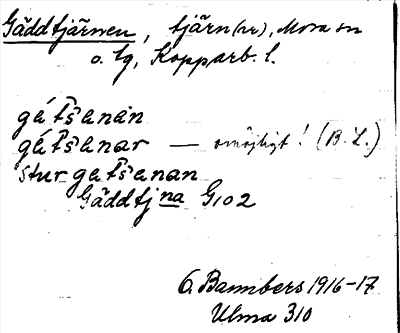 Gäddtjärnen, tjärn(ar), Mora sn
o. tg, Kopparb. l.
gátšanan
gátšanar — omöjligt! (B. L.)
stur gatšanan
Gäddtjna G102
O. Bannbers 1916-17
Ulma 310